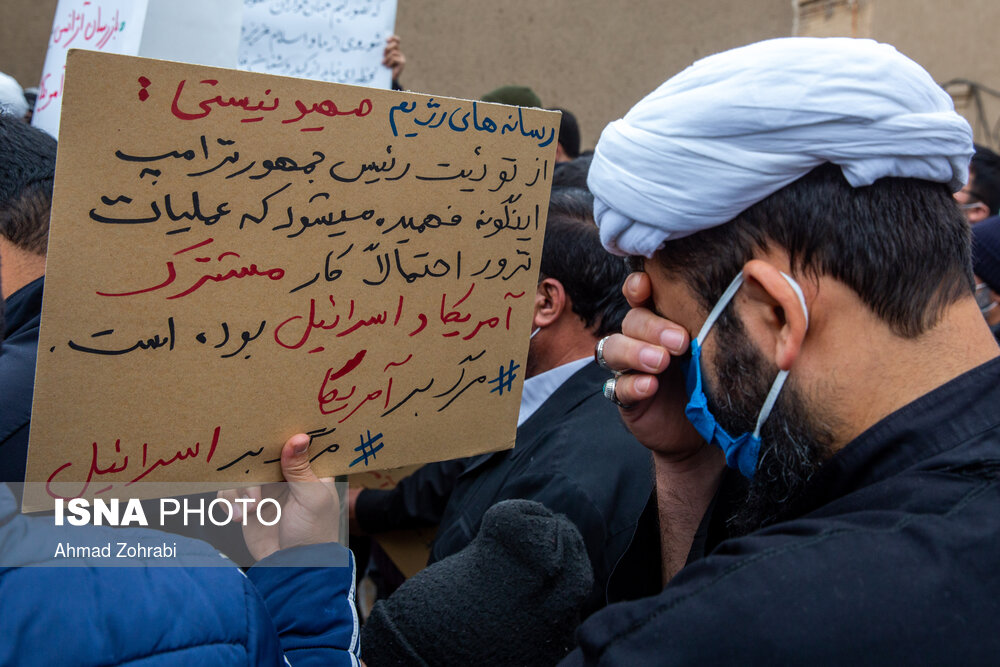 بازرسان آژانس
رسانه های رژیم صهیونیستی :
از توئیت رئیس جمهور ترامپ
اینگونه فهمیده میشود که عملیات
ترور احتمالاً کار مشترک
آمریکا و اسرائیل بوده است.
#مرگ بر آمریکا
#مرگ بر اسرائیل
ISNA PHOTO
Ahmad Zohrabi